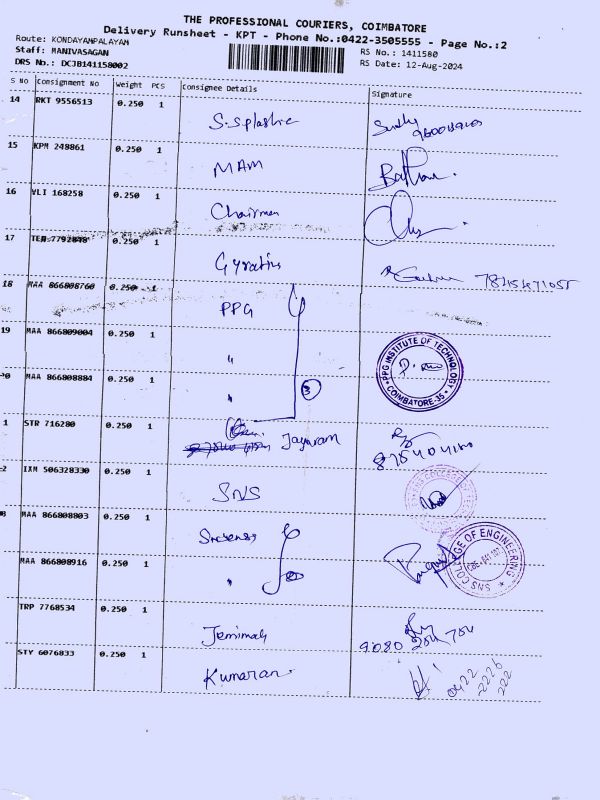 THE PROFESSIONAL COURIERS, COIMBATORE
Delivery Runsheet - KPT - Phone No.:0422-3505555 - Page No.:2
Route: KONDAYAMPALAYAM
Staff: MANIVASAGAN
DRS No.: DCJB141158002
RS No.: 1411580
RS Date: 12-Aug-2024
S No Consignment No Weight PCS Consignee Details Signature
14 RKT 9556513 0.250 1
15 KPM 248861 0.250 1 MAM
16 VLI 168258 0.250 1 Chairman
17 7792848 0.250 1
18 MAA 866808760 0.250 1 PPG
19 MAA 866809004 0.250 1 "
MAA 866808884 0.250 1 "
3
PPG INSTITUTE OF TECHNOLOGY
COIMBATORE-35
1 STR 716280 0.250 1 Jayaram
IXM 506328330 0.250 1 SNS
MAA 866808803 0.250 1
SNS COLLEGE OF ENGINEERING
MAA 866808916 0.250 1 "
TRP 7768534 0.250 1 Jemimah
9080 204 704
STY 6076833 0.250 1 Kumaran
0422
2226
222